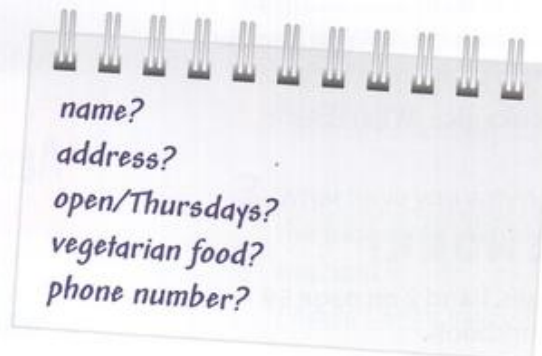 name?
address?
open/Thursdays?
vegetarian food?
phone number?